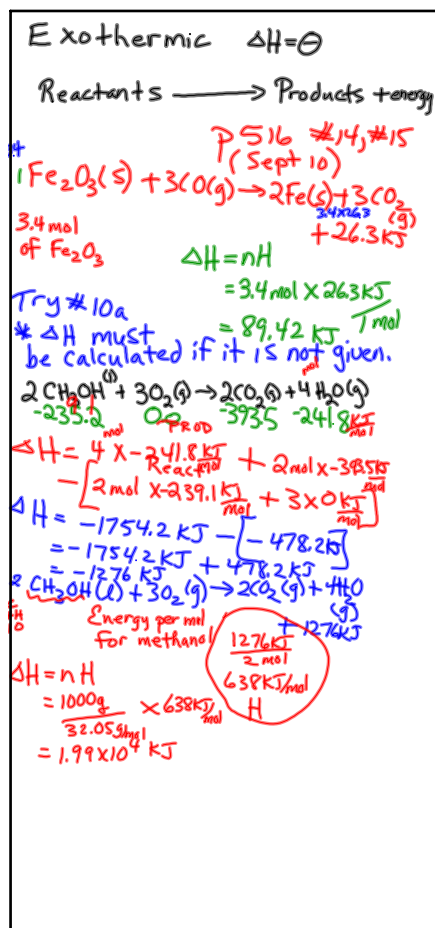 Exothermic ΔH=⊖
Reactants ⟶ Products + energy
p 516 #14, #15
(Sept 10)
1 Fe₂O₃(s) + 3CO(g) → 2Fe(s) + 3CO₂(g)
3.4×26.3
+ 26.3 KJ
3.4 mol
of Fe₂O₃
ΔH = nH
= 3.4 mol × 26.3 KJ/1 mol
= 89.42 KJ
Try #10a
* ΔH must
be calculated if it is not given.
2CH₃OH(l) + 3O₂(g) → 2CO₂(g) + 4H₂O(g)
-393.5 -241.8 KJ/mol
PROD
ΔH = 4 mol × -241.8 KJ/mol + 2 mol × -393.5 KJ/mol
React
- [2 mol × -239.1 KJ/mol + 3 × 0 KJ/mol]
ΔH = -1754.2 KJ - [-478.2 KJ]
= -1754.2 KJ + 478.2 KJ
= -1276 KJ
CH₃OH(l) + 3O₂(g) → 2CO₂(g) + 4H₂O(g)
+ 1276 KJ
Energy per mol
for methanol
1276 KJ/2 mol
638 KJ/mol
H
ΔH = nH
= 1000g/32.05g/mol × 638 KJ/mol
= 1.99×10⁴ KJ